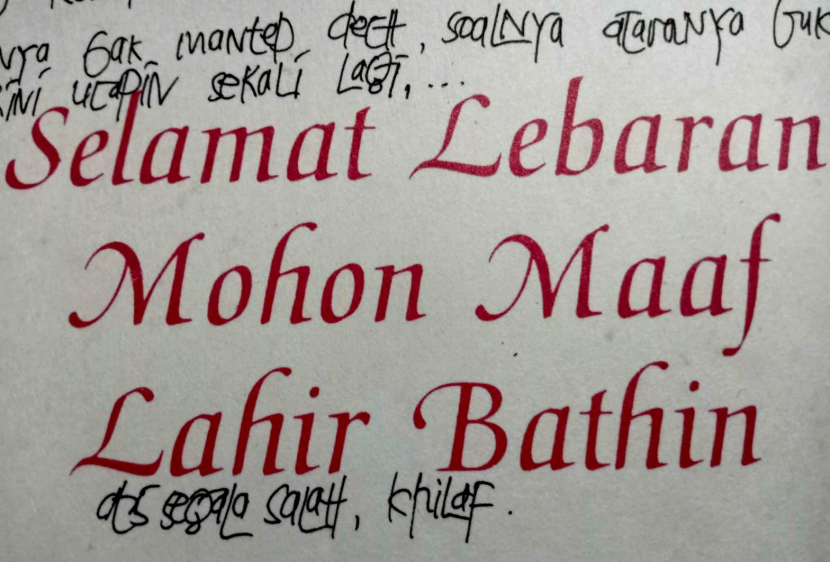 nya Gak mantep dech, soalnya ataranya Guk
kini ucapin sekali lagi, ...
Selamat Lebaran
Mohon Maaf
Lahir Bathin
ats segala salah, khilaf.